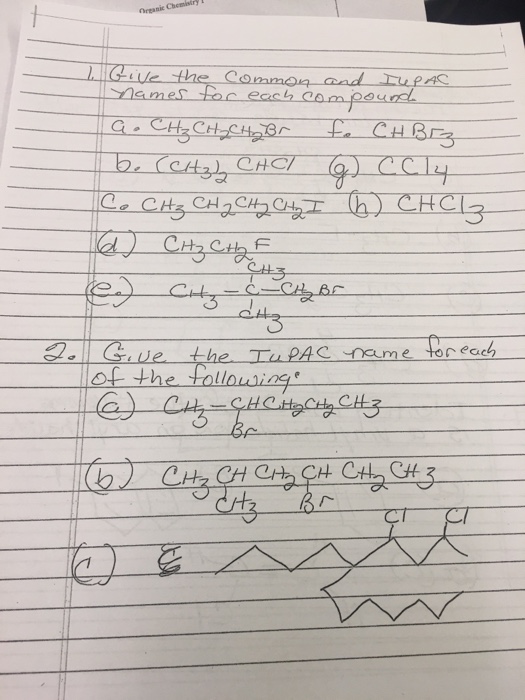 Organic Chemistry
1. Give the Common and IUPAC
names for each compound.
a. CH3CH2CH2Br f. CHBr3
b. (CH3)2 CHCl (g) CCl4
C. CH3 CH2CH2CH2I (h) CHCl3
(d) CH3CH2F
CH3
(e.) CH3-C-CH2Br
CH3
2. Give the IUPAC name for each
of the following:
(a) CH3-CHCH2CH2CH3
Br
(b) CH3 CH CH2 CH CH2 CH3
CH3 Br
Cl Cl
(c)